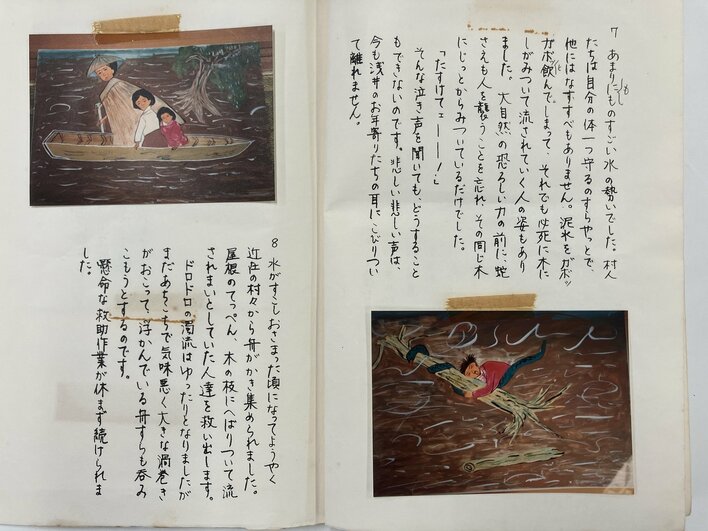 7 あまりにものすごい水の勢いでした。村人
たちは自分の体一つ守るのすらやっとで、
他にはなすすべもありません。泥水をガボッ
ガボ飲んでしまって、それでも必死に木に
しがみついて流されていく人の姿もあり
ました。大自然の恐ろしい力の前に、蛇
さえも人を襲うことを忘れ、その同じ木
にじっとからみついているだけでした。
「たすけてェーー！」
そんな泣き声を聞いても、どうすること
もできないのです。悲しい悲しい声は、
今も浅井のお年寄りたちの耳にこびりつい
て離れません。
8 水がすこしおさまった頃になってようやく
近在の村々から舟がかき集められました。
屋根のてっぺん、木の枝にへばりついて流
されまいとしていた人達を救い出します。
ドロドロの濁流はゆったりとなりましたが
まだあちこちで気味悪く大きな渦巻き
がおこって、浮かんでいる舟すらも呑み
こもうとするのです。
懸命な救助作業が休まず続けられま
した。